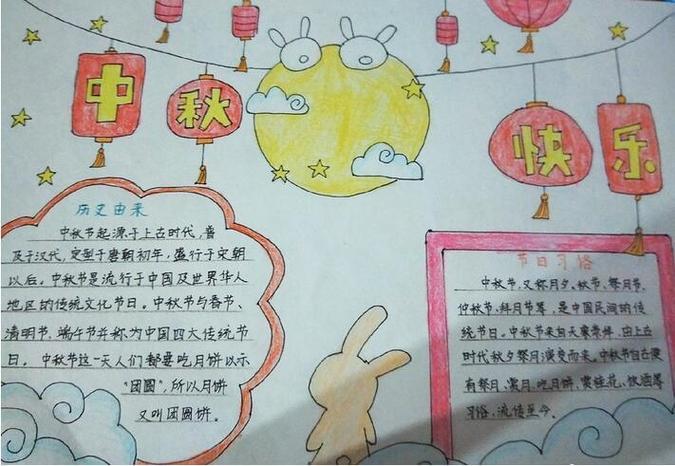 中秋快乐
历史由来
中秋节起源于上古时代，普
及于汉代，定型于唐朝初年，盛行于宋朝
以后。中秋节是流行于中国及世界华人
地区的传统文化节日。中秋节与春节、
清明节、端午节并称为中国四大传统节
日。中秋节这一天人们都要吃月饼以示
“团圆”，所以月饼
又叫团圆饼。
节日习俗
中秋节，又称月夕、秋节、祭月节、
仲秋节，拜月节等，是中国民间的传
统节日。中秋节来自天象崇拜，由上古
时代秋夕祭月演变而来。中秋节自古便
有祭月、赏月、吃月饼、赏桂花、饮酒等
习俗，流传至今。